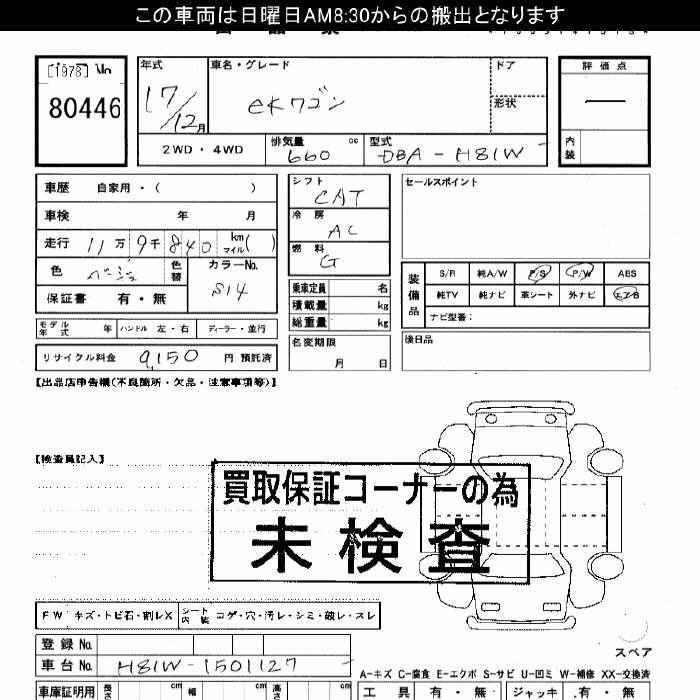 この車両は日曜日AM8:30からの搬出となります
[1978] No
80446
年式 車名・グレード ドア 評価点
17/12月 eKワゴン 形状
2WD・4WD 排気量 cc 660 型式 DBA-H81W 内装
車歴 自家用・( )
車検 年 月
走行 11万9千840 km マイル( )
色 ベージュ 色替 カラーNo. S14
保証書 有・無
モデル年式 年 ハンドル 左・右 ディーラー・並行
リサイクル料金 9,150 円 預託済
シフト CAT
冷房 AC
燃料 G
乗車定員 名
積載量 kg
総重量 kg
名変期限
月 日
セールスポイント
装備品 S/R 純A/W P/S P/W ABS
純TV 純ナビ 革シート 外ナビ エアB
ナビ型番:
後日品
【出品店申告欄(不良箇所・欠品・注意事項等)】
【検査員記入】
買取保証コーナーの為
未検査
FW キズ・トビ石・割レX シート内装 コゲ・穴・汚レ・シミ・破レ・スレ
登録No.
車台No. H81W-1501127
車庫証明用 長さ cm 幅 cm 高さ cm
スペア
A-キズ C-腐食 E-エクボ S-サビ U-凹ミ W-補修 XX-交換済
工具 有・無 ジャッキ 有・無